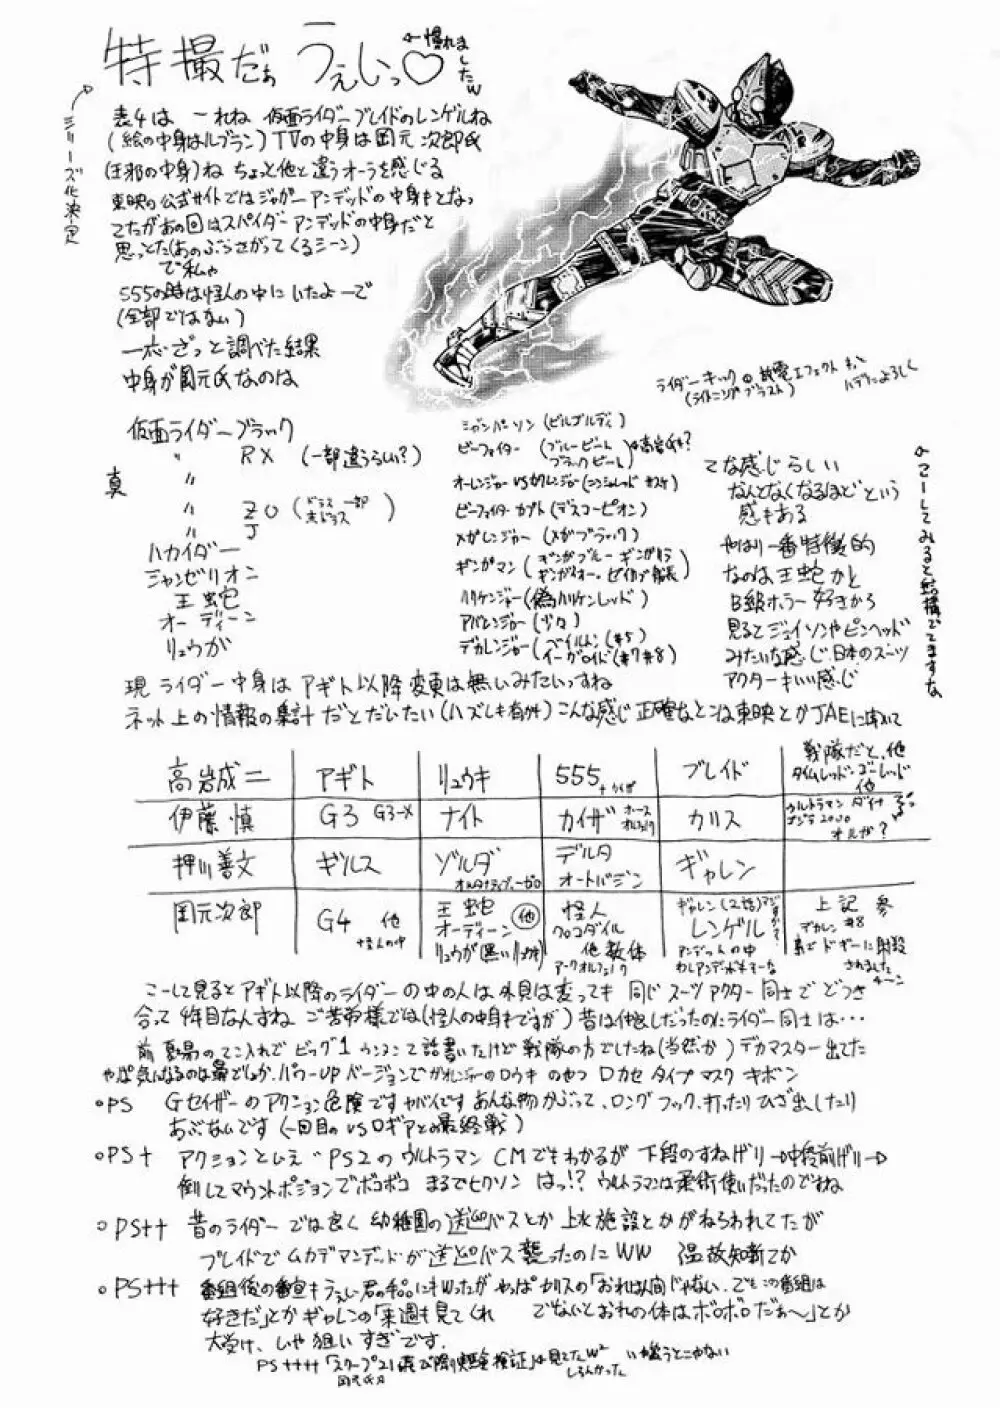 特撮だぁ うぇしっ♡
←慣れましたw
シリーズ化決定
表4は 一れね 仮面ライダーブレイドのレンゲルね
(絵の中身はルブラン)TVの中身は岡元次郎氏
(王邪の中身)ね ちょっと他と違うオーラを感じる
東映の公式サイトではジャガーアンデッドの中身もとなっ
てたがあの回はスパイダーアンデッドの中身だと
思っとた(あのぶらさがってくるシーン)
で私ゃ
555の時は怪人の中にいたよーで
(全部ではない)
一応ざっと調べた結果
中身が岡元氏なのは
ライダーキックの放電エフェクトも
(ライトニングブラスト)
ハデによろしく
仮面ライダーブラック
〃 RX (一部違うらしい?)
真 〃
〃 ZO (ドラス一部 赤ドラス)
〃 J
ハカイダー
ジャンゼリオン
王蛇
オーディーン
リュウガ
ジャンパーソン(ビルゴルディ)
ビーファイター(ブルービート ブラックビート)←高岩氏も?
オーレンジャーVSカクレンジャー(ニンジャレッド サスケ)
ビーファイターカブト(デスコーピオン)
メガレンジャー(メガブラック)
ギンガマン(ギンガブルー ギンガイオー・ゼイハブ船長)
ハリケンジャー(偽ハリケンレッド)
アバレンジャー(少々)
デカレンジャー(ベイルドン(#5) イーガロイド(#7#8)
てな感じらしい
なんとなくなるほどという
感もある
やはり一番特徴的
なのは王蛇かと
B級ホラー好きから
見るとジェイソンやピンヘッド
みたいな感じ日本のスーツ
アクターもいい感じ
←こーしてみると結構でてますな
現ライダー中身はアギト以降変更は無いみたいっすね
ネット上の情報の集計だとだいたい(ハズレも有かも)こんな感じ正確なとこは東映とかJAEに聞いて
高岩成二 アギト リュウキ 555+カイザ ブレイド 戦隊だと、他 タイムレッド・ゴーレッド他
伊藤慎 G3 G3-X ナイト カイザ ホースオルフェノク カリス ウルトラマンダイナ ゴジラ2000 オルガ?
押川善文 ギルス ゾルダ オルタナティブ・ゼロ デルタ オートバジン ギャレン
岡元次郎 G4 他 怪人の中 王蛇 オーディーン 他 リュウガ(黒いリュウキ) 怪人 クロコダイル 他数体 アークオルフェノク ギャレン(2話)マジすか? レンゲル アンデットの中 上記参 デカレン#8 素でドギーに射殺されました チーン
こーして見るとアギト以降のライダーの中の人は外見は変っても同じスーツアクター同士でどつき
合って4年目なんすね ご苦労様では(怪人の中身もですが)昔は仲良しだったのにライダー同士は…
前夏場のてこ入れでビッグ1ウンヌンて話書いたけど戦隊の方でしたね(当然か)デカマスター出てた
やっぱ気になるのは鼻でしょか、パワーUPバージョンでガオレンジャーのロウキのやつ口カセタイプマスクキボン
○PS Gセイザーのアクション危険ですヤバイですあんな物かぶって、ロングフック、打ったりひざ出したり
あぶないです(一回目のVSロギアとの最終戦)
○PS+ アクションといえばPS2のウルトラマンCMでもわかるが下段のすねげり→中段前げり→
倒してマウントポジションでボコボコ まるでヒクソン はっ!?ウルトラマンは柔術使いだったのですね
○PS++ 昔のライダーでは良く幼稚園の送迎バスとか上水施設とかがねらわれてたが
ブレイドでムカデアンデッドが送迎バス襲ったのにWW 温故知新てか
○PS+++ 番組後の番宣もうぇい君の手。。にもワラったがやっぱカリスの「おれは人間じゃない、でもこの番組は
好きだ」とかギャレンの「来週も見てくれ でないとおれの体はボロボロだぁ〜」とか
大受け、しゃ狙いすぎです。